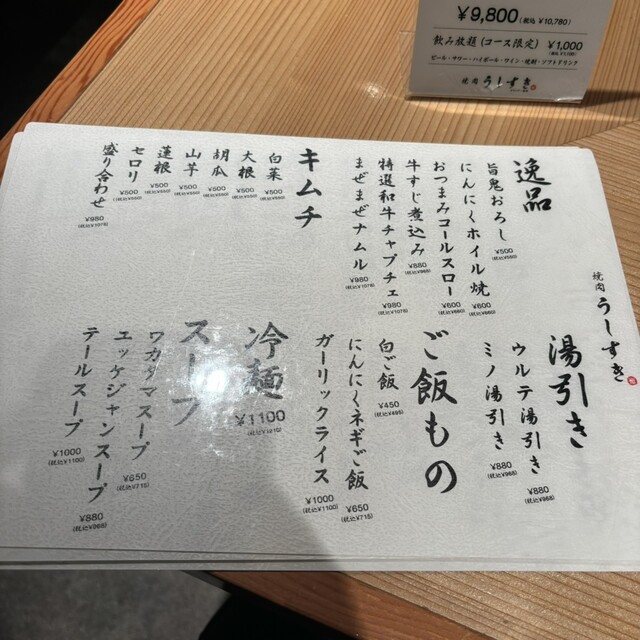 ¥9,800(税込 ¥10,780)
飲み放題(コース限定) ¥1,000
ビール・サワー・ハイボール・ワイン・焼酎・ソフトドリンク
焼肉 うしすき
焼肉 うしすき
逸品
旨鬼おろし ¥500 (税込¥550)
にんにくホイル焼 ¥600 (税込¥660)
おつまみコールスロー ¥600 (税込¥660)
牛すじ煮込み ¥880 (税込¥968)
特選和牛チャプチェ ¥980 (税込¥1078)
まぜまぜナムル ¥980 (税込¥1078)
キムチ
白菜 ¥500 (税込¥550)
大根 ¥500 (税込¥550)
胡瓜 ¥500 (税込¥550)
山芋 ¥500 (税込¥550)
蓮根 ¥500 (税込¥550)
セロリ ¥500 (税込¥550)
盛り合わせ ¥980 (税込¥1078)
湯引き
ウルテ湯引き ¥880 (税込¥968)
ミノ湯引き ¥880 (税込¥968)
ご飯もの
白ご飯 ¥450 (税込¥495)
にんにくネギご飯 ¥650 (税込¥715)
ガーリックライス ¥1000 (税込¥1100)
冷麺 ¥1100 (税込¥1210)
スープ
ワカタマスープ ¥650 (税込¥715)
エッケジャンスープ ¥880 (税込¥968)
テールスープ ¥1000 (税込¥1100)